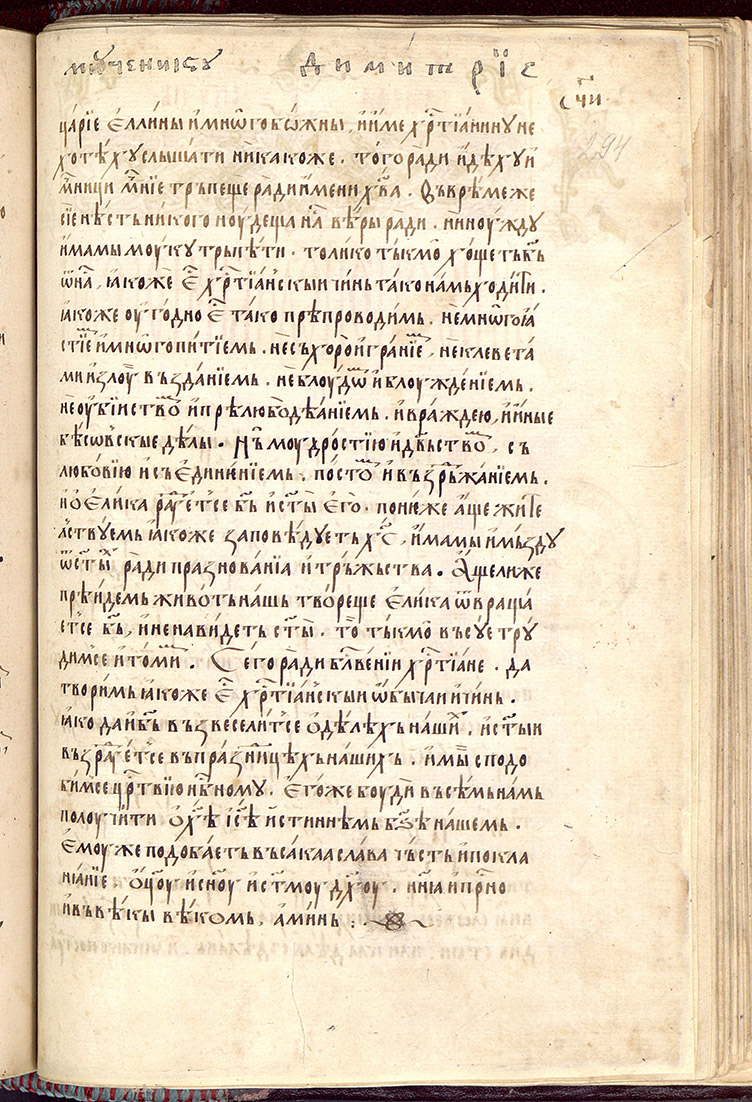 мꙋченикꙋ Димитрїе
с҃чи
294
ца́рїе є҆́ллины и҆мнѡ́гобѡ́жны, и҆и҆́ме хр҃тїа́нинꙋ не
хотѣ́хꙋ слы́шати ника́коже. того̀ ра́ди и҆дѣ́хꙋ и҆
м҃нци мн҃їе трьпе́ще ра́ди и҆́мени хв҃а. Въ врѣ́ме же
сїе нѣ́сть нико́го ноу́деща на҃ вѣ́ры ра́ди. ни ноу́ждꙋ
и҆́мамы моу́кꙋ трьпѣ́ти. то́лико ты́кмѡ хо́щеть бь҃
ѿ на҃, ꙗ҆́коже є҃ хр҃тїа́нскыи чи́нь та́ко на́мь ходи́ти.
ꙗ҆́коже оу҆го́дно є҃ та́ко прѣпрово́димь. не мнѡ́гоꙗ
стїе и҆ мнѡ́гопи́тїемь. не съ хоро̀ и҆гра́нїе, не клевета́
ми и҆ злоу̀ въз̾да́нїемь. не блоу́дѡ и҆ блоужде́нїемь.
не оу҆бїи́ство и҆ прѣлюбодѣ́анїемь. и҆ вра́ждею, и҆ и҆́ные
бѣсѡ́вскые дѣ́лы. Нь҃ моу́дростїю и҆ дѣ́вьство, съ
любо́вїю и҆ съ є҆дине́нїемь. по́сто и҆ въз̾дрьжа́нїемь.
и҆ о҆ є҆ли́ка ра́дꙋетсе бь҃ и҆ ст҃ы є҆го̀. поне́же а҆́ще жите
лствꙋемь ꙗ҆́коже заповѣ́дꙋеть хс҃, и҆́мамы и҆ мь́здꙋ
ѿ ст҃ы́ ра́ди праз̾нова́нїа и҆ трь́жьства. А҆́щели же
прѣи́демь живо́ть нашь творе́ще є҆ли́ка ѿвраща́
етсе бь҃, и҆ ненави́деть ст҃ы. то̀ ты́кмѡ въсꙋ́е трꙋ́
димсе и҆ томи́. Сего̀ ра́ди блв҃е́нїи хр҃тїа́не. да
твори́мь ꙗ҆́коже є҃ хр҃тїа́нскыи ѡ҆бы́чаи и҆ чи́нь.
ꙗ҆́ко да и҆ бь҃ въз̾весели́тсе о҆ дѣ́лѣхь на́ши. и҆ ст҃ыи
въз̾ра́дꙋетсе въ пра́з̾ницѣхь на́шихь. и҆ мы̀ сподо
бимсе цр҃твїю нб҃номꙋ. Є҆го́же бꙋ́ди въсѣ́мь на́мь
полоу́чити о҆ хѣ҃ і҆сѣ҃ и҆́стиннѣмь бѕ҃ѣ на́шемь.
Є҆моу́же подоба́еть въса́каа сла́ва чь́сть и҆ покла
ня́нїе. ѻ҆ц҃оу и҆ сн҃оу и҆ ст҃моу дх҃оу. нн҃ꙗ и҆ пр҃но
и҆ въ вѣ́кы вѣ́комь, а҆ми́нь :